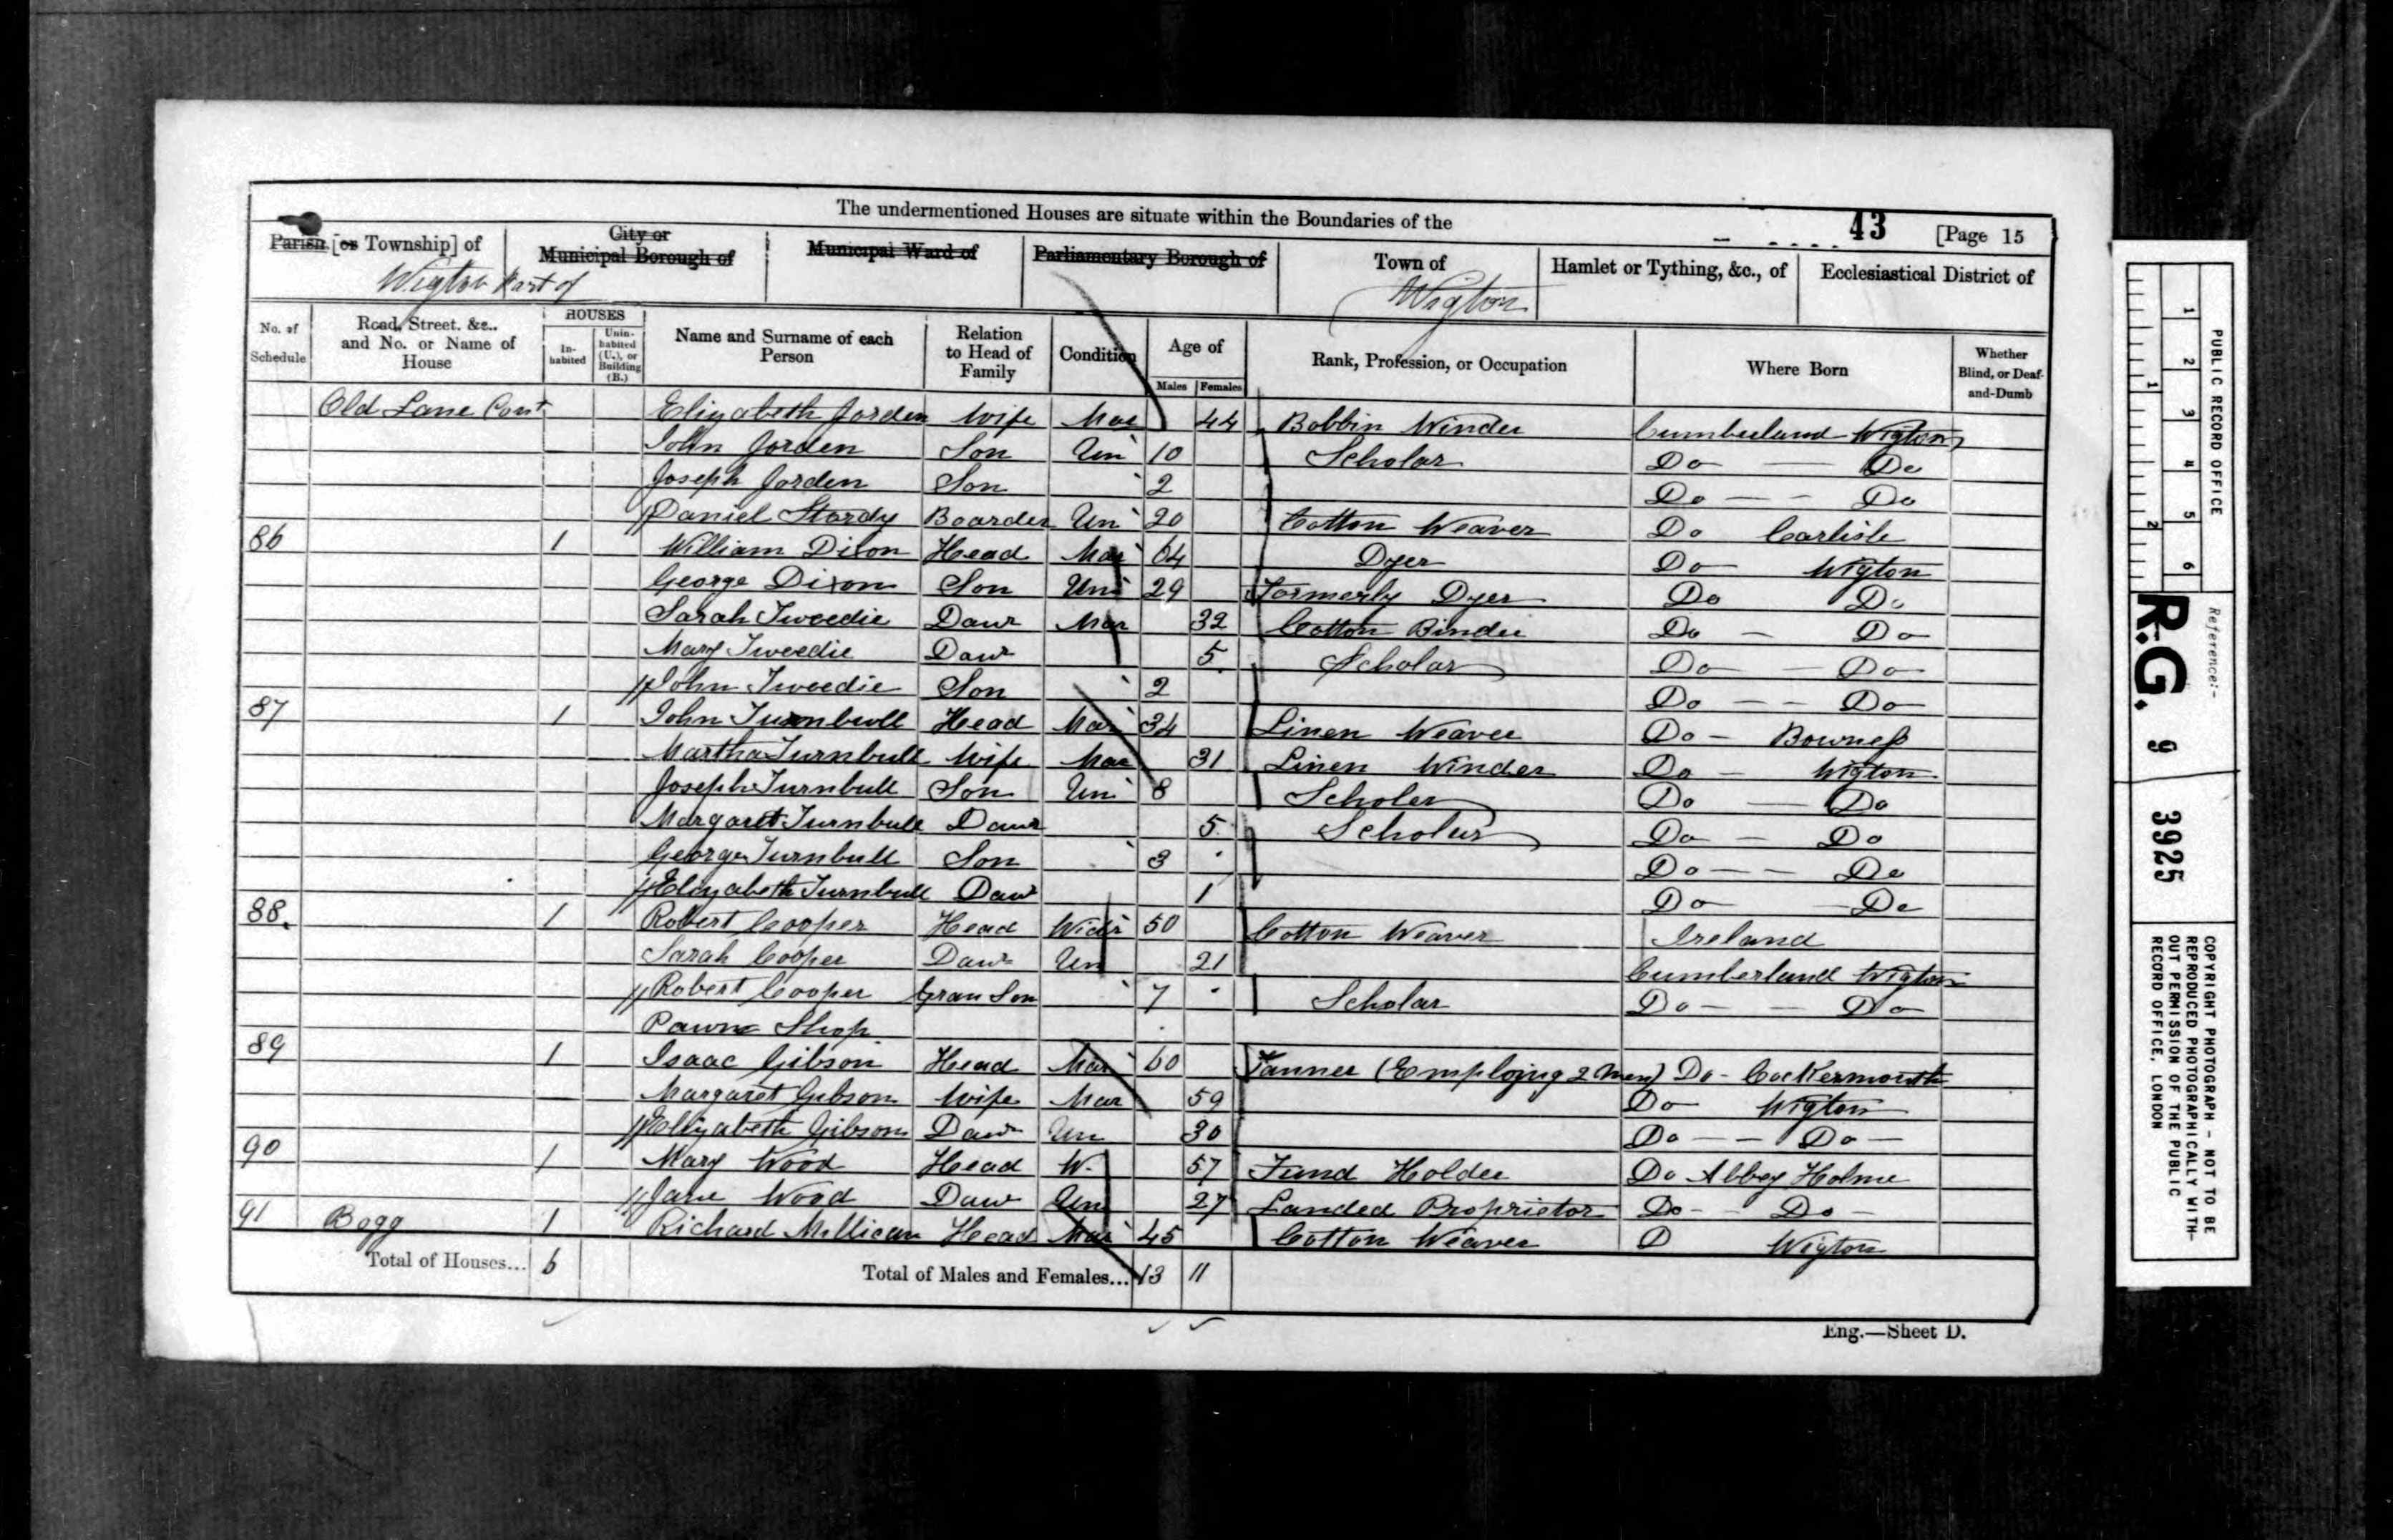 The undermentioned Houses are situate within the Boundaries of the
43 [Page 15
Parish [or Township] of
City or Municipal Borough of
Municipal Ward of
Parliamentary Borough of
Town of
Hamlet or Tything, &c., of
Ecclesiastical District of
Wigton Part of
Wigton
No. of Schedule
Road, Street, &c., and No. or Name of House
HOUSES
In-habited
Unin-habited (U.), or Building (B.)
Name and Surname of each Person
Relation to Head of Family
Condition
Age of
Males Females
Rank, Profession, or Occupation
Where Born
Whether Blind, or Deaf-and-Dumb
Old Lane Cont Elizabeth Jorden Wife Mar 44 Bobbin Winder Cumberland Wigton
John Jorden Son Un 10 Scholar Do Do
Joseph Jorden Son 2 Do Do
Daniel Stordy Boarder Un 20 Cotton Weaver Do Carlisle
86 1 William Dixon Head Mar 64 Dyer Do Wigton
George Dixon Son Un 29 Formerly Dyer Do Do
Sarah Tweedie Daur Mar 32 Cotton Binder Do Do
Mary Tweedie Daur 5 Scholar Do Do
John Tweedie Son 2 Do Do
87 1 John Turnbull Head Mar 34 Linen Weaver Do Bowness
Martha Turnbull Wife Mar 31 Linen Winder Do Wigton
Joseph Turnbull Son Un 8 Scholer Do Do
Margaret Turnbull Daur 5 Scholer Do Do
George Turnbull Son 3 Do Do
Elizabeth Turnbull Daur 1 Do Do
88. 1 Robert Cooper Head Widr 50 Cotton Weaver Ireland
Sarah Cooper Daur Un 21 Cumberland Wigton
Robert Cooper Gran Son 7 Scholar Do Do
Pawn Shop
89 1 Isaac Gibson Head Mar 60 Tanner (Employing 2 Men) Do Cockermouth
Margaret Gibson Wife Mar 59 Do Wigton
Elizabeth Gibson Daur Un 30 Do Do
90 1 Mary Wood Head W. 57 Fund Holder Do Abbey Holme
Jane Wood Daur Un 27 Landed Proprietor Do Do
91 Bogg 1 Richard Millican Head Mar 45 Cotton Weaver D Wigton
Total of Houses... 6 Total of Males and Females... 13 11
Eng.—Sheet D.
PUBLIC RECORD OFFICE
1 2 3 4 5 6
1 2
Reference:-
R.G. 9 3925
COPYRIGHT PHOTOGRAPH - NOT TO BE
REPRODUCED PHOTOGRAPHICALLY WITH-
OUT PERMISSION OF THE PUBLIC
RECORD OFFICE, LONDON